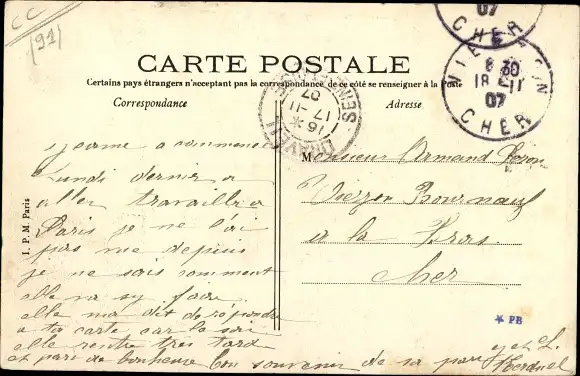 CC
(91)
CARTE POSTALE
Certains pays étrangers n'acceptent pas la correspondance de ce côté se renseigner à la Poste
Correspondance
Adresse
07
CHER
8 30
18 2-11
07
CHER
DRAVEIL
16 *
17 -11
07
SEINE
a commencé
Lundi dernier a
aller travailler a
Paris je ne l'ai
pas vue depuis
je ne sais comment
elle va sy faire
elle ma dit de répondre
a ta carte car le soir
elle rentre tres tard
et pas de bonheure bon souvenir de
Monsieur Armand
Vierzon Bourgneuf
a la
Cher
I. P. M. Paris
* PB